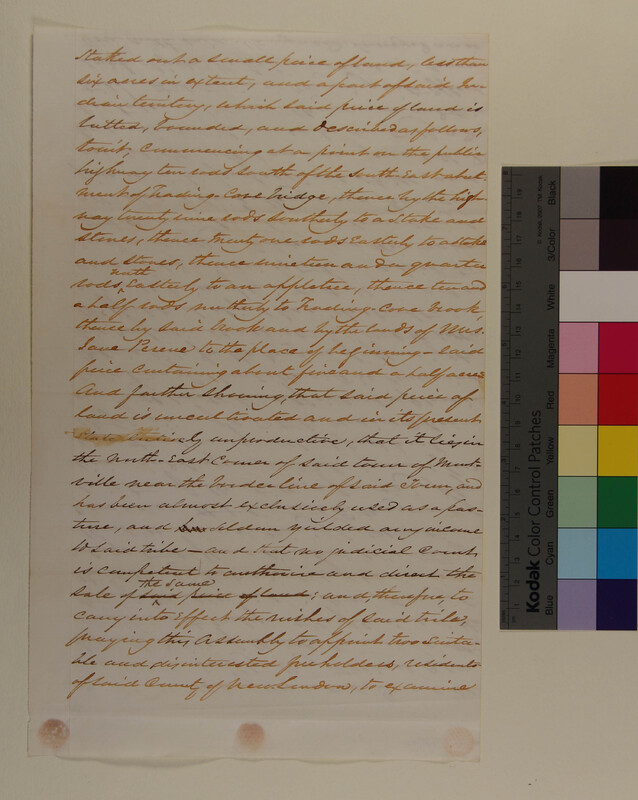 Staked out a small piece of land, less than
six acres in extent, and a part of said In-
dian territory, which said piece of land is
butted, bounded, and described as follows,
towit, Commencing at a point on the public
highway ten rods south of the South-East abut
ment of Trading-Cove Bridge, thence by the high-
way twenty nine rods Southerly to a Stake and
stones, thence twenty one rods Easterly to a stake
and Stones, thence nineteen and a quarter
north
rods Easterly to an appletree, thence two and
a half rods northerly to Trading-Cove Brook
thence by said Brook and by the lands of Mrs.
Jane to the place of beginning - said
piece containing about five and a half acres
And further showing, that said piece of
land is uncultivated and in its present
state entirely unproductive, that it lies in
the North-East Corner of said town of Mont-
ville near the border line of said Town, and
has been almost exclusively used as a Pas-
ture, and seldom yielded any income
to said tribe - and that no judicial Court,
is competent to authorise and direct the
the same
Sale of said piece of land; and therefore, to
carry into Effect the wishes of said tribe,
praying this Assembly to appoint two Suita-
ble and disinterested freeholders, residents
of said County of New London, to examine
Kodak Color Control Patches
© Kodak, 2007 TM: Kodak
Blue
Cyan
Green
Yellow
Red
Magenta
White
3/Color
Black